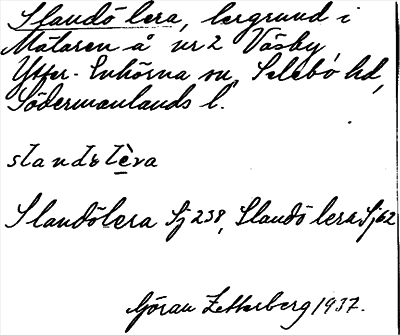 Slandö lera, lergrund i
Mälaren å nr 2 Väsby,
Ytter-Enhörna sn, Selebo hd,
Södermanlands l.
slandölèra
Slandölera Sj 238, Slandö lera Sj 62
Göran Zetterberg 1937.